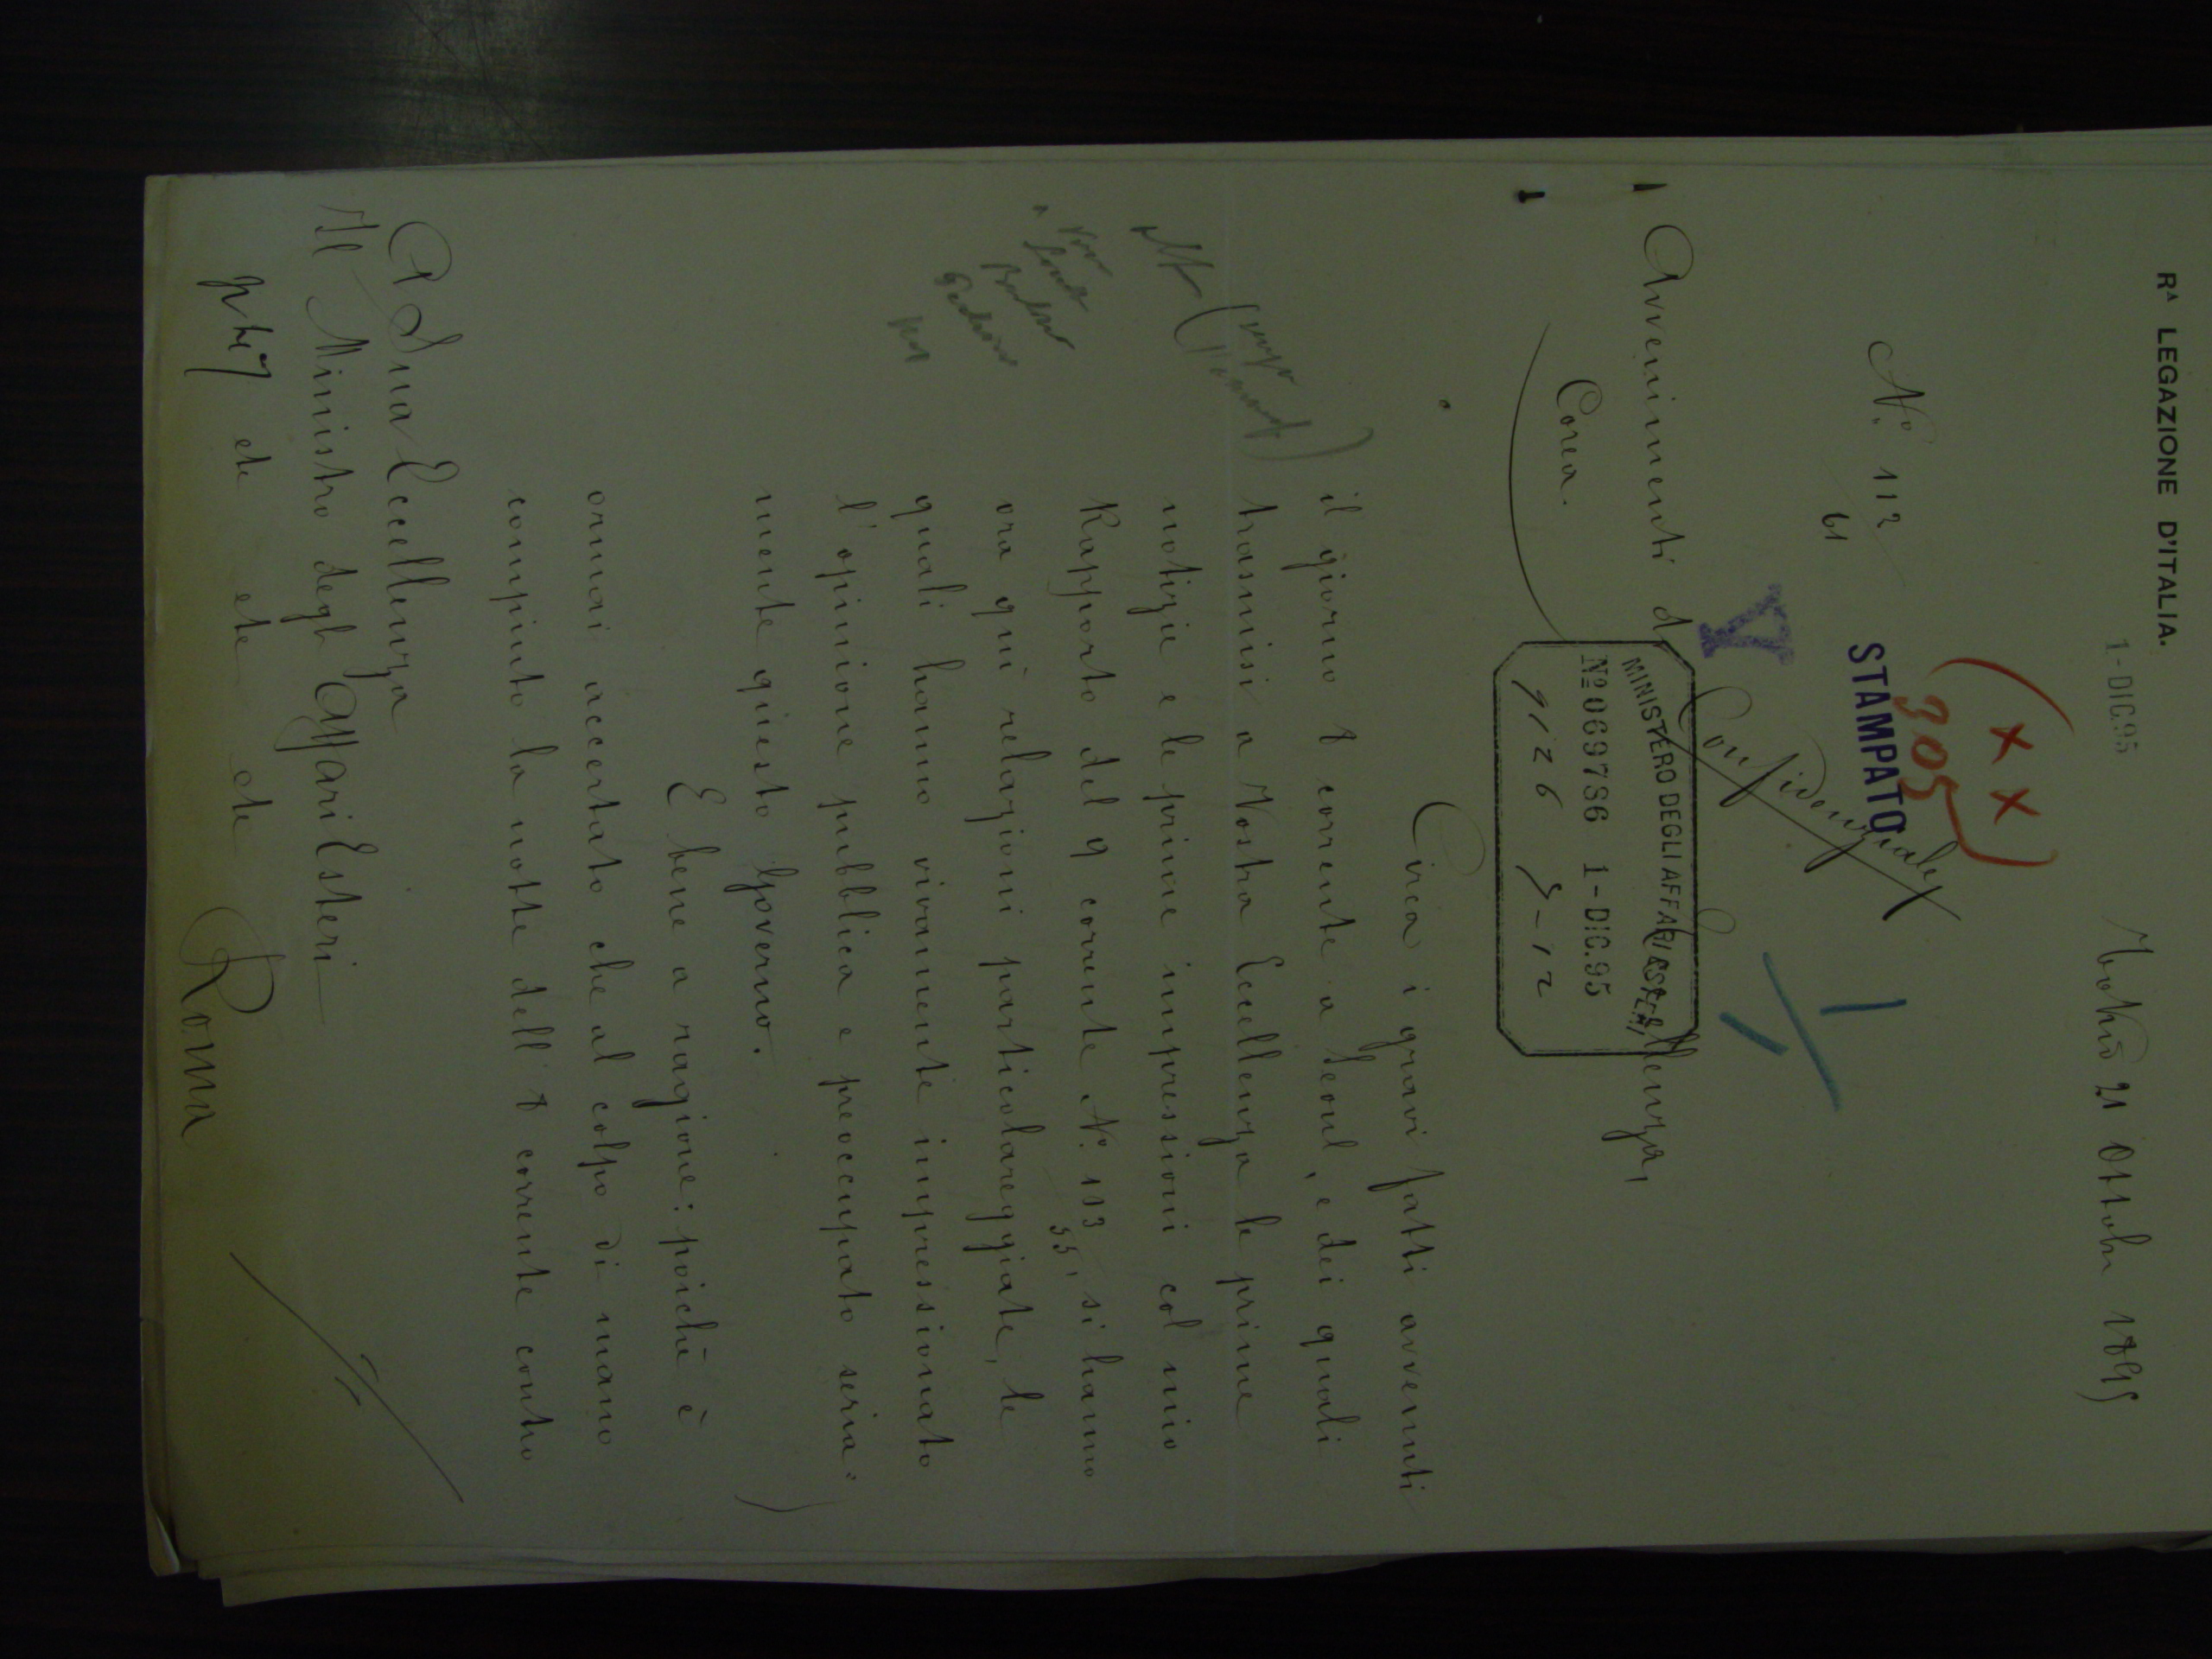 Rᴬ LEGAZIONE D'ITALIA.
1-DIC.95
Tokio 21 Ottobre 1895
(x x)
305
N.º 112
61
STAMPATO
Confidenziale
Avvenimenti di
Corea.
MINISTERO DEGLI AFFARI ESTERI
Nº 069786 1-DIC.95
9126 3-12
Eccellenza,
Circa i gravi fatti avvenuti
il giorno 8 corrente a Seoul, e dei quali
trasmisi a Vostra Eccellenza le prime
notizie e le prime impressioni col mio
Rapporto del 9 corrente N.º 103, si hanno
55
ora quì relazioni particolareggiate, le
quali hanno vivamente impressionato
l'opinione pubblica e preoccupato seria=
mente questo Governo.
E bene a ragione: poichè è
ormai accertato che al colpo di mano
compiuto la notte dell' 8 corrente contro
A Sua Eccellenza
Il Ministro degli Affari Esteri
etc etc etc
Roma